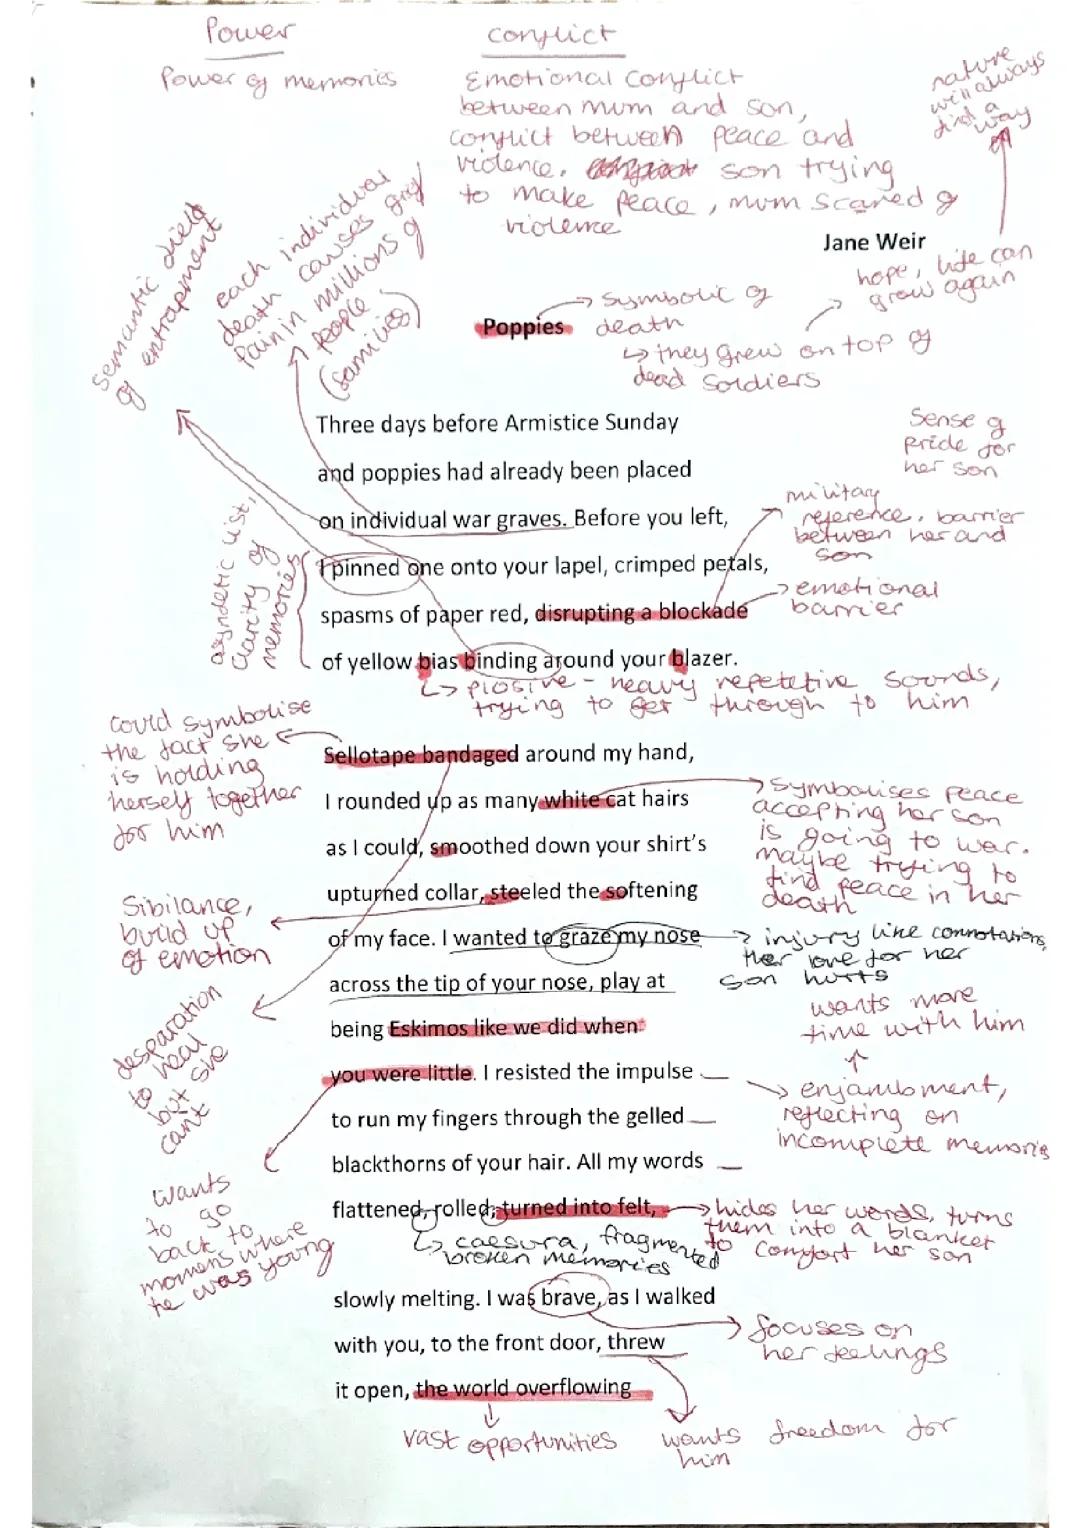 Power
Power of memories
conflict
Emotional conflict
between mum and son,
conflict between peace and
violence. son trying
to make peace, mum scared of
violence
nature
will always
find a
way
Jane Weir
hope, life can
grow again
semantic field
of entrapment
each individual
death causes grief
pain in millions of
people
(families)
Poppies
symbolic of
death
they grew on top of
dead soldiers
Three days before Armistice Sunday
and poppies had already been placed
on individual war graves. Before you left,
I pinned one onto your lapel, crimped petals,
spasms of paper red, disrupting a blockade
of yellow bias binding around your blazer.
Sense of
pride for
her son
military
reference, barrier
between her and
son
emotional
barrier
asyndetic list,
clarity of
memories
plosive - heavy repetetive sounds,
trying to get through to him
could symbolise
the fact she
is holding
herself together
for him
Sellotape bandaged around my hand,
I rounded up as many white cat hairs
as I could, smoothed down your shirt's
upturned collar, steeled the softening
of my face. I wanted to graze my nose
across the tip of your nose, play at
being Eskimos like we did when
you were little. I resisted the impulse
to run my fingers through the gelled
blackthorns of your hair. All my words
flattened, rolled, turned into felt,
symbolises peace
accepting her son
is going to war.
maybe trying to
find peace in her
death
Sibilance,
build up
of emotion
injury like connotations,
her love for her
son hurts
wants more
time with him
enjambment,
reflecting on
incomplete memories
desparation
to heal
but she
cant
wants
to go
back to
momens where
he was young
hides her words, turns
them into a blanket
to comfort her son
caesura, fragmented
broken memories
slowly melting. I was brave, as I walked
with you, to the front door, threw
it open, the world overflowing
focuses on
her feelings
vast opportunities
wants freedom for
him